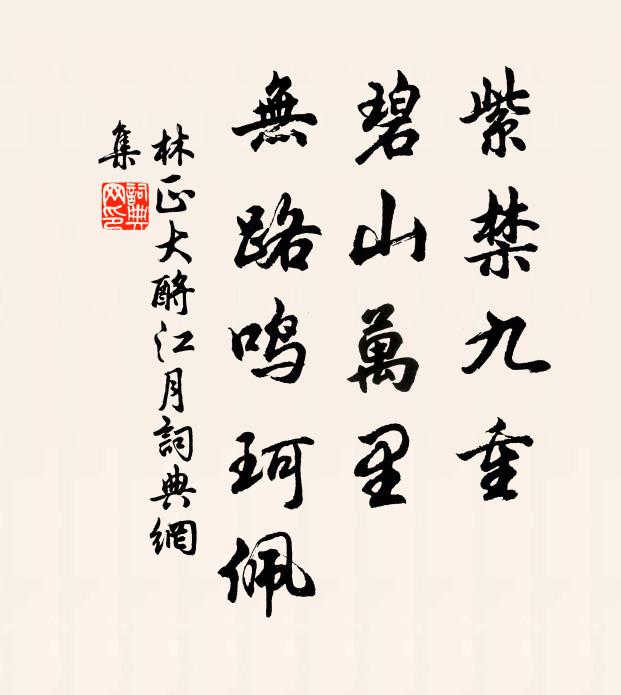 紫禁九重
碧山萬里
無路鸣珂佩
林正大酹江月詞典網
集
詞典网印